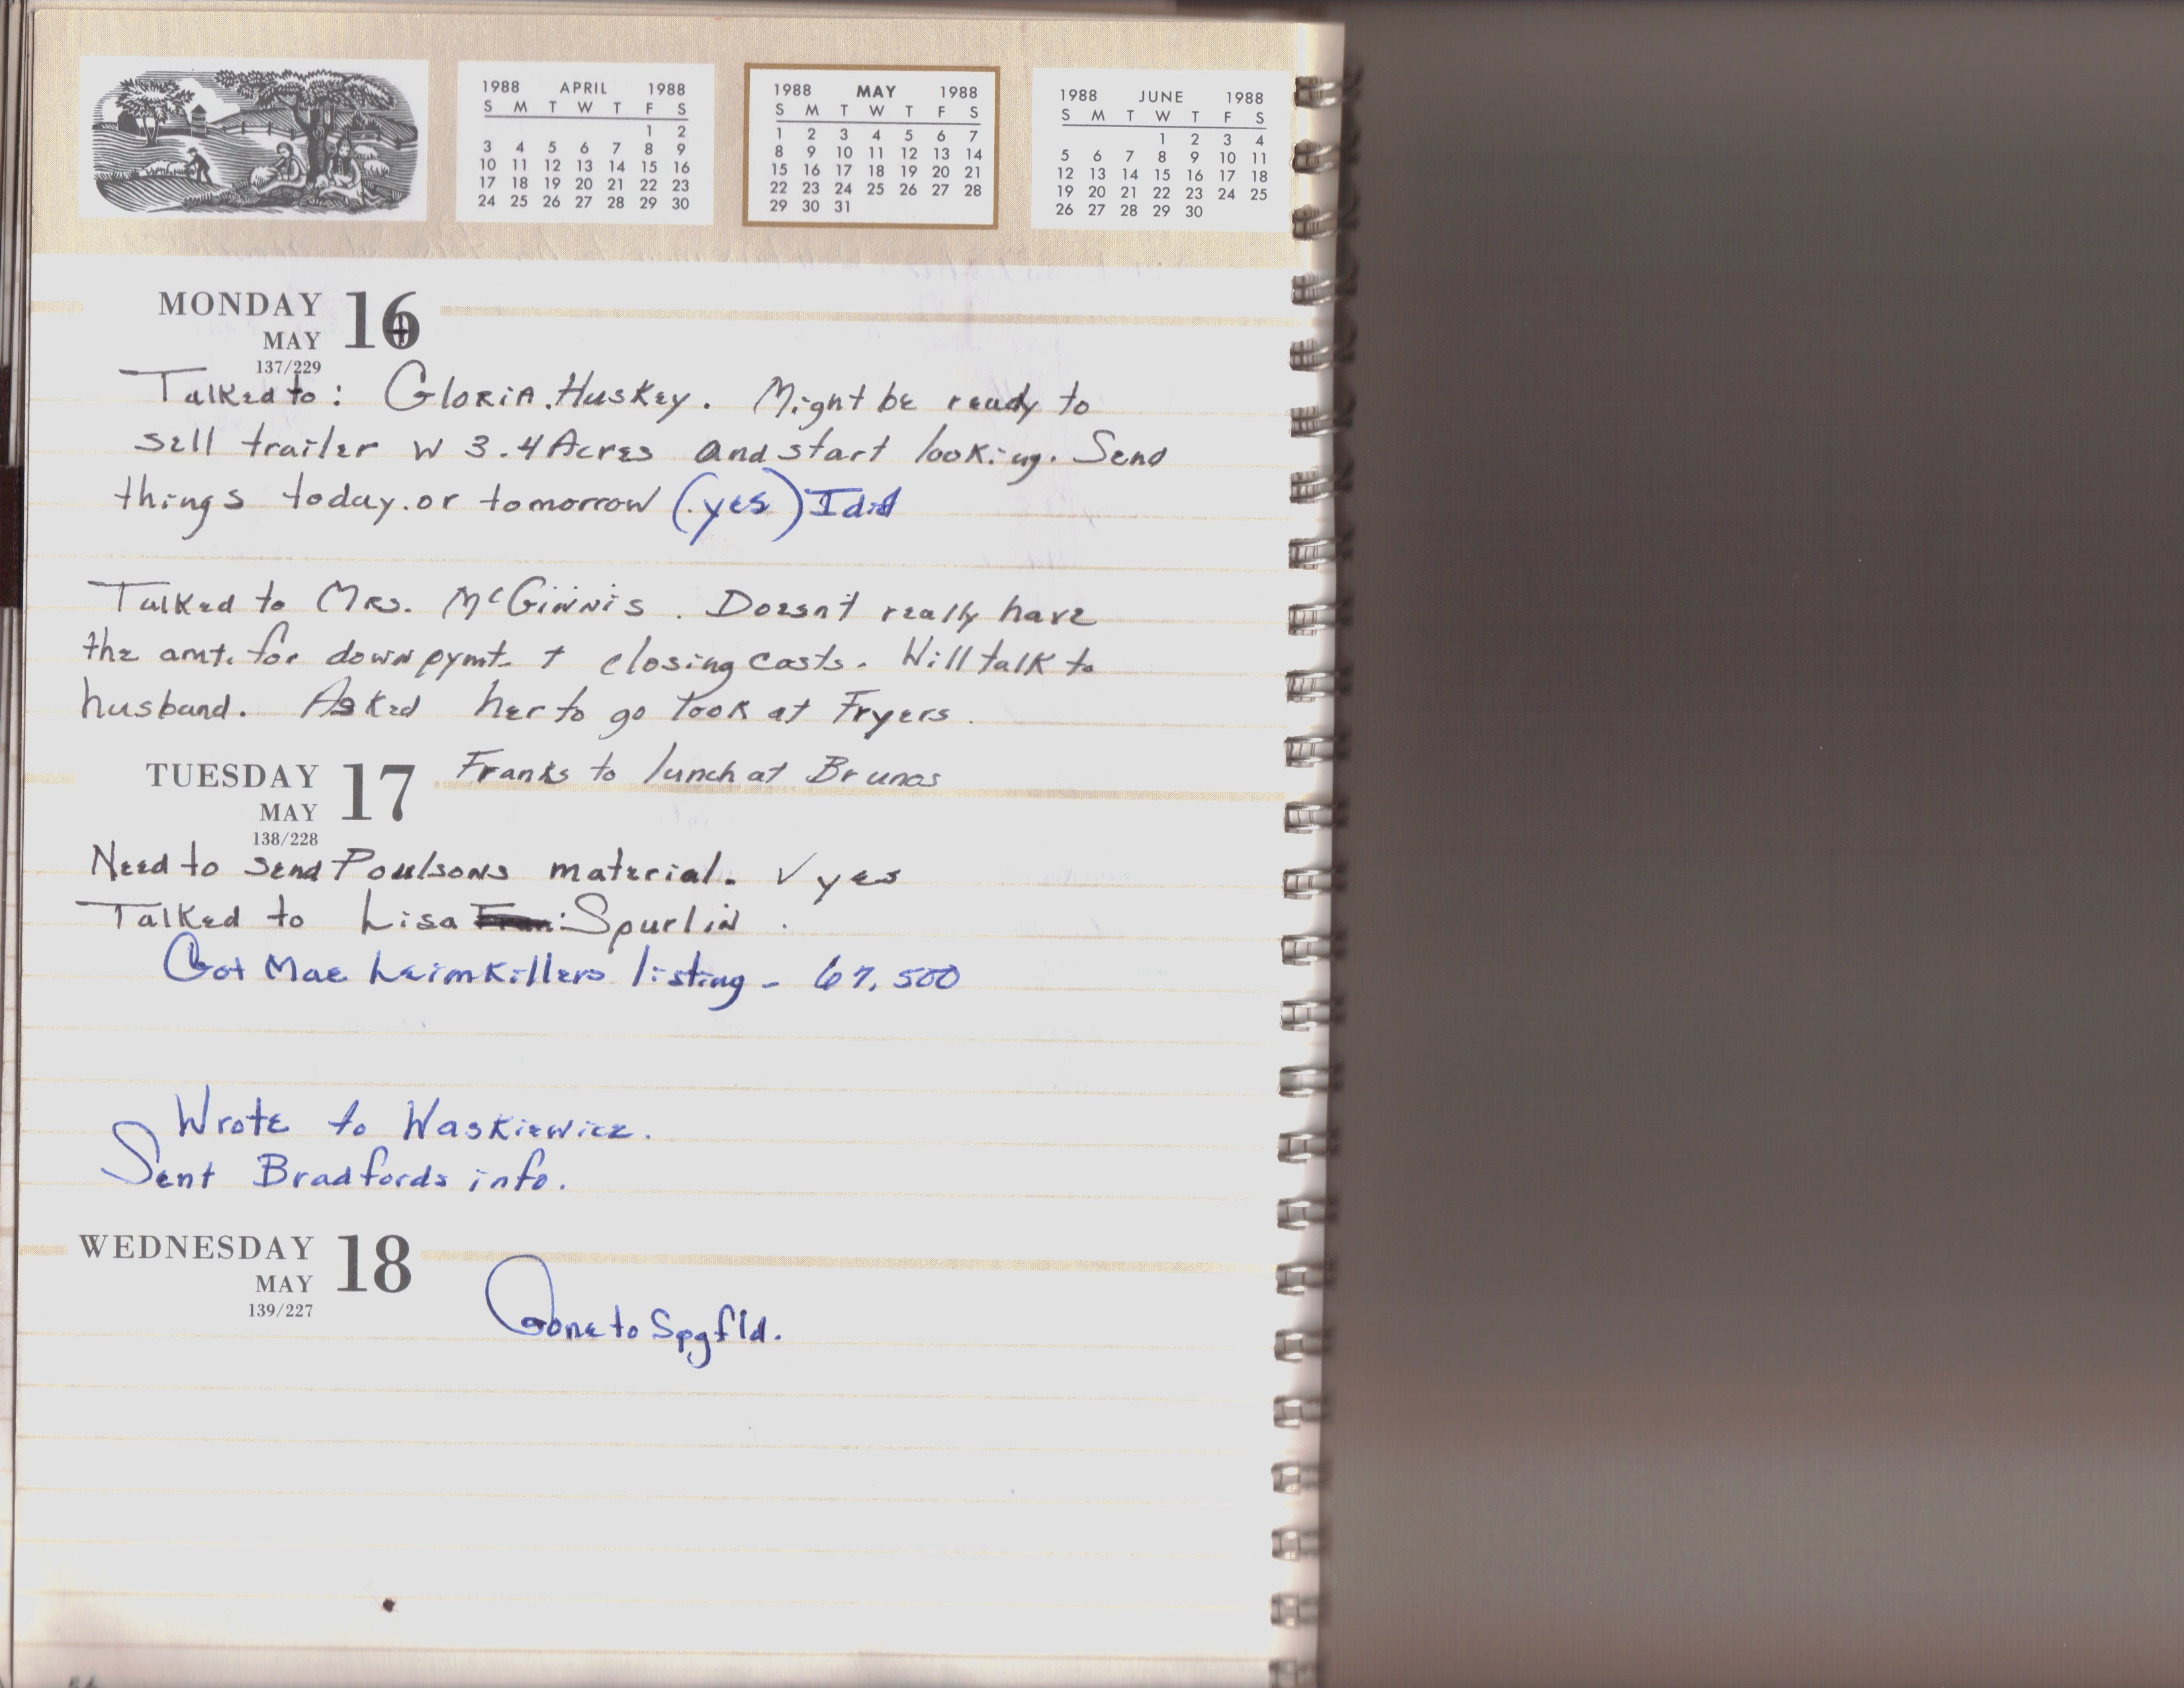 1988 APRIL 1988
S M T W T F S
1 2
3 4 5 6 7 8 9
10 11 12 13 14 15 16
17 18 19 20 21 22 23
24 25 26 27 28 29 30
1988 MAY 1988
S M T W T F S
1 2 3 4 5 6 7
8 9 10 11 12 13 14
15 16 17 18 19 20 21
22 23 24 25 26 27 28
29 30 31
1988 JUNE 1988
S M T W T F S
1 2 3 4
5 6 7 8 9 10 11
12 13 14 15 16 17 18
19 20 21 22 23 24 25
26 27 28 29 30
MONDAY 16
MAY
137/229
Talked to: Gloria Huskey. Might be ready to
sell trailer w 3.4 Acres and start looking. Send
things today or tomorrow (yes) I did
Talked to Mrs. McGinnis. Doesn't really have
the amt. for down pymt. + closing costs. Will talk to
husband. Asked her to go look at Fryers.
TUESDAY 17 Franks to lunch at Brunos
MAY
138/228
Need to send Poulsons material. ✓ yes
Talked to Lisa Spurlin.
Got Mae Leimkillers listing - 67,500
Wrote to Waskiewicz.
Sent Bradfords info.
WEDNESDAY 18
MAY
139/227
Gone to Spgfld.